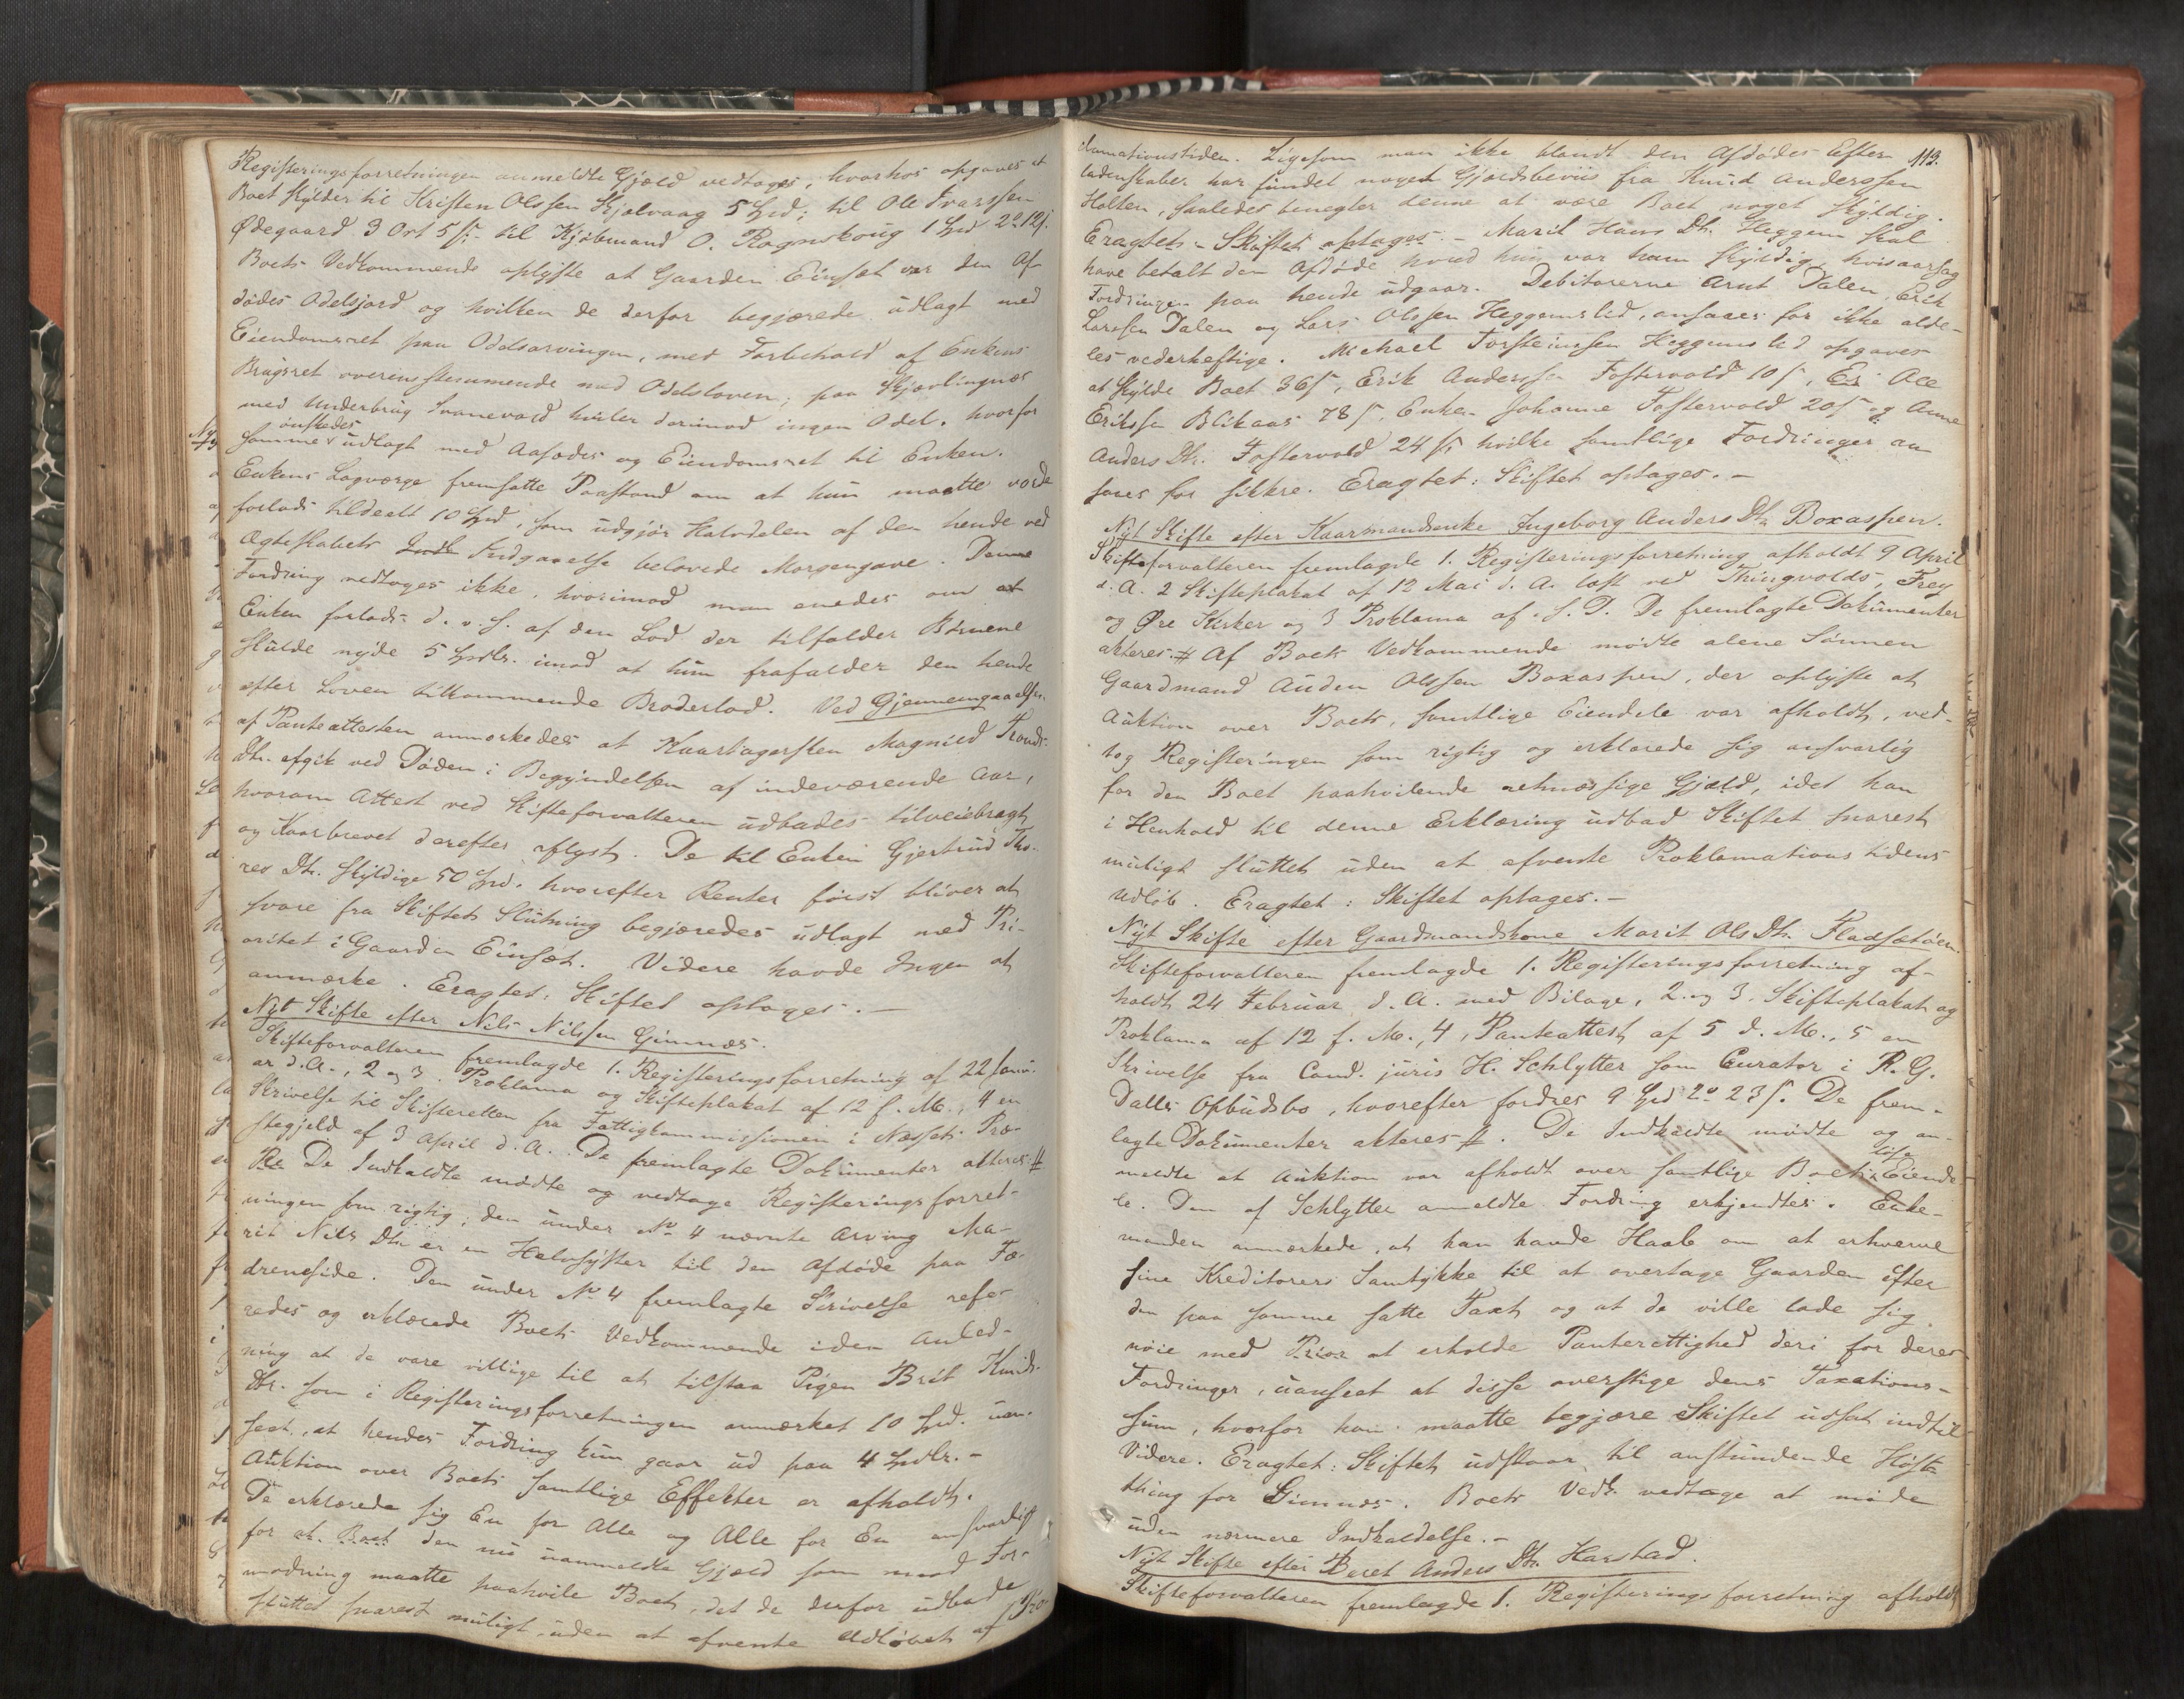 Registeringsforretningen anmeldte Gjæld vedtoges, hvorhos opgaves at
Boet skylder til Kristen Olssen Skjølvaag 5 Spd; til Ole Ivarssen
Ødegaard 3 Ort 5 s. til Kjøbmand O. Rognskoug 1 Spd 2 o 12 s.
Boets Vedkommende oplyste at Gaarden Einsæt var den Af-
dødes Odelsjord og hvilken de derfor begjærede udlagt med
Eiendomsret paa Odelsarvingen, med Forbehold af Enkens
Brugsret overensstemmende med Odelsloven; paa Skjævlingnæs
med Underbrug Svanevold hviler derimod ingen Odel, hvorfor
samme ønskedes udlagt med Aasædes og Eiendomsret til Enken.
Enkens Lagværge fremsatte Paastand om at hun maatte vorde
forlods tildeelt 10 Spd, som udgjør Halvdelen af den hende ved
Ægteskabets Indg Indgaaelse belovede Morgengave. Denne
Fordring vedtoges ikke, hvorimod man enedes om at
Enken forlods d. v. s. af den Lod der tilfalder Børnene
skulde nyde 5 Spdlr. imod at hun frafalder den hende
efter Loven tilkommende Broderlod. Ved Gjennemgaaelsen
af Panteattesten anmærkedes at Kaartagersken Magnild Tronds
Dtr. afgik ved Døden i Begyndelsen af indeværende Aar,
hvorom Attest ved Skifteforvalteren udbades tilveiebragt
og Kaarbrevet derefter aflyst. De til Enken Gjertrud Tho-
res Dtr. skyldige 50 Spd. hvorefter Renter først bliver at
svare fra Skiftets Slutning begjæredes udlagt med Pri-
oritet i Gaarden Einsæt. Videre havde Ingen at
anmærke. Eragtet: Skiftet optages. –
Nyt Skifte efter Nils Nilssen Gimnæs.
Skifteforvalteren fremlagde 1. Registeringsforretning af 22 Janu-
ar d. A., 2 og 3. Proklama og Skifteplakat af 12 f. M., 4 en
Skrivelse til Skifteretten fra Fattigkommissionen i Næssets Præ-
stegjeld af 3 April d. A. De fremlagte Dokumenter akteres #
Re De Indkaldte mødte og vedtoge Registeringsforret-
ningen som rigtig; den under No 4 nævnte Arving Ma-
rit Nils Dtr er en Halvsyster til den Afdøde paa Fæ-
dreneside. Den under No 4 fremlagte Skrivelse refe-
redes og erklærede Boets Vedkommende i den Anled-
ning at de vare villige til at tilstaa Pigen Brit Knuds
Dtr. som i Registeringsforretningen anmærket 10 Spd. uan-
seet, at hendes Fordring kun gaar ud paa 4 Spdlr. –
Auktion over Boets samtlige Effekter er afholdt.
De erklærede sig En for Alle og Alle for En ansvarlig
for at Boet den nu uanmeldte Gjæld som mod For-
modning maatte paahvile Boet, det de derfor udbade
sluttet snarest muligt, uden at afvente Udløbet af Pro-
113.
klamationstiden. Ligesom man ikke blandt den Afdødes Efter-
ladenskaber har fundet noget Gjældsbeviis fra Knud Anderssen
Holten, saaledes benegter denne at være Boet noget skyldig.
Eragtet: Skiftet optages. – Marit Hans Dtr. Heggem skal
have betalt den Afdøde hvad hun var ham skyldig, hvisaarsag
Fordringen paa hende udgaar. Debitorerne Arnt Dalen, Erik
Larssen Dalen og Lars Olssen Heggemslid, ansaaes for ikke alde-
les vederheftige. Michael Torsteinssen Heggemslid opgaves
at skylde Boet 36 s, Erik Anderssen Fostervold 10 s, Er Ole
Erikssen Blikaas 78 s. Enken Johanne Fostervold 20 s og Anne
Anders Dtr. Fostervold 24 s. hvilke samtlige Fordringer an-
saaes for sikkre. Eragtet: Skiftet optages. –
Nyt Skifte efter Kaarmandsenke Ingeborg Anders Dtr Boxaspen.
Skifteforvalteren fremlagde 1. Registeringsforretning afholdt 9 April
d. A. 2 Skifteplakat af 12 Mai d. A. læst ved Thingvolds, Frey
og Øre Kirker og 3 Proklama af s. D. De fremlagte Dokumenter
akteres. # Af Boets Vedkommende mødte alene Sønnen
Gaardmand Auden Olssen Boxaspen, der oplyste at
Auktion over Boets samtlige Eiendele var afholdt, ved-
tog Registeringen som rigtig og erklærede sig ansvarlig
for den Boet paahvilende retmæssige Gjæld, idet han
i Henhold til denne Erklæring udbad Skiftet snarest
muligt sluttet uden at afvente Proklamationstidens
Udløb. Eragtet: Skiftet optages. –
Nyt Skifte efter Gaardmandskone Marit Ols Dtr. Fladsætøen.
Skifteforvalteren fremlagde 1. Registeringsforretning af-
holdt 24 Februar d. A. med Bilage, 2. og 3. Skifteplakat og
Proklama af 12 f. M., 4, Panteattest af 5 d. M., 5 en
Skrivelse fra Cand. juris H. Schlytter som Curator i R. G.
Dalls Opbudsbo, hvorefter fordres 9 Spd 2 o 23 s. De frem-
lagte Dokumenter akteres #. De Indkaldte mødte og an-
meldte at Auktion var afholdt over samtlige Boets løse Eiende-
le. Den af Schlytter anmeldte Fordring erkjendtes. Enke-
manden anmærkede, at han havde Haab om at erhverve
sine Kreditorers Samtykke til at overtage Gaarden efter
den paa samme satte Taxt og at de ville lade sig
nøie med Prior at erholde Panterettighed deri for deres
Fordringer, uanseet at disse overstige dens Taxations-
sum, hvorfor han maatte begjære Skiftet udsat indtil
Videre. Eragtet: Skiftet udstaar til anstundende Høst-
thing for Gimnæs. Boets Vedk. vedtage at møde
uden nærmere Indkaldelse. –
Nyt Skifte efter Beret Anders Dtr. Harstad.
Skifteforvalteren fremlagde 1. Registeringsforretning afholdt